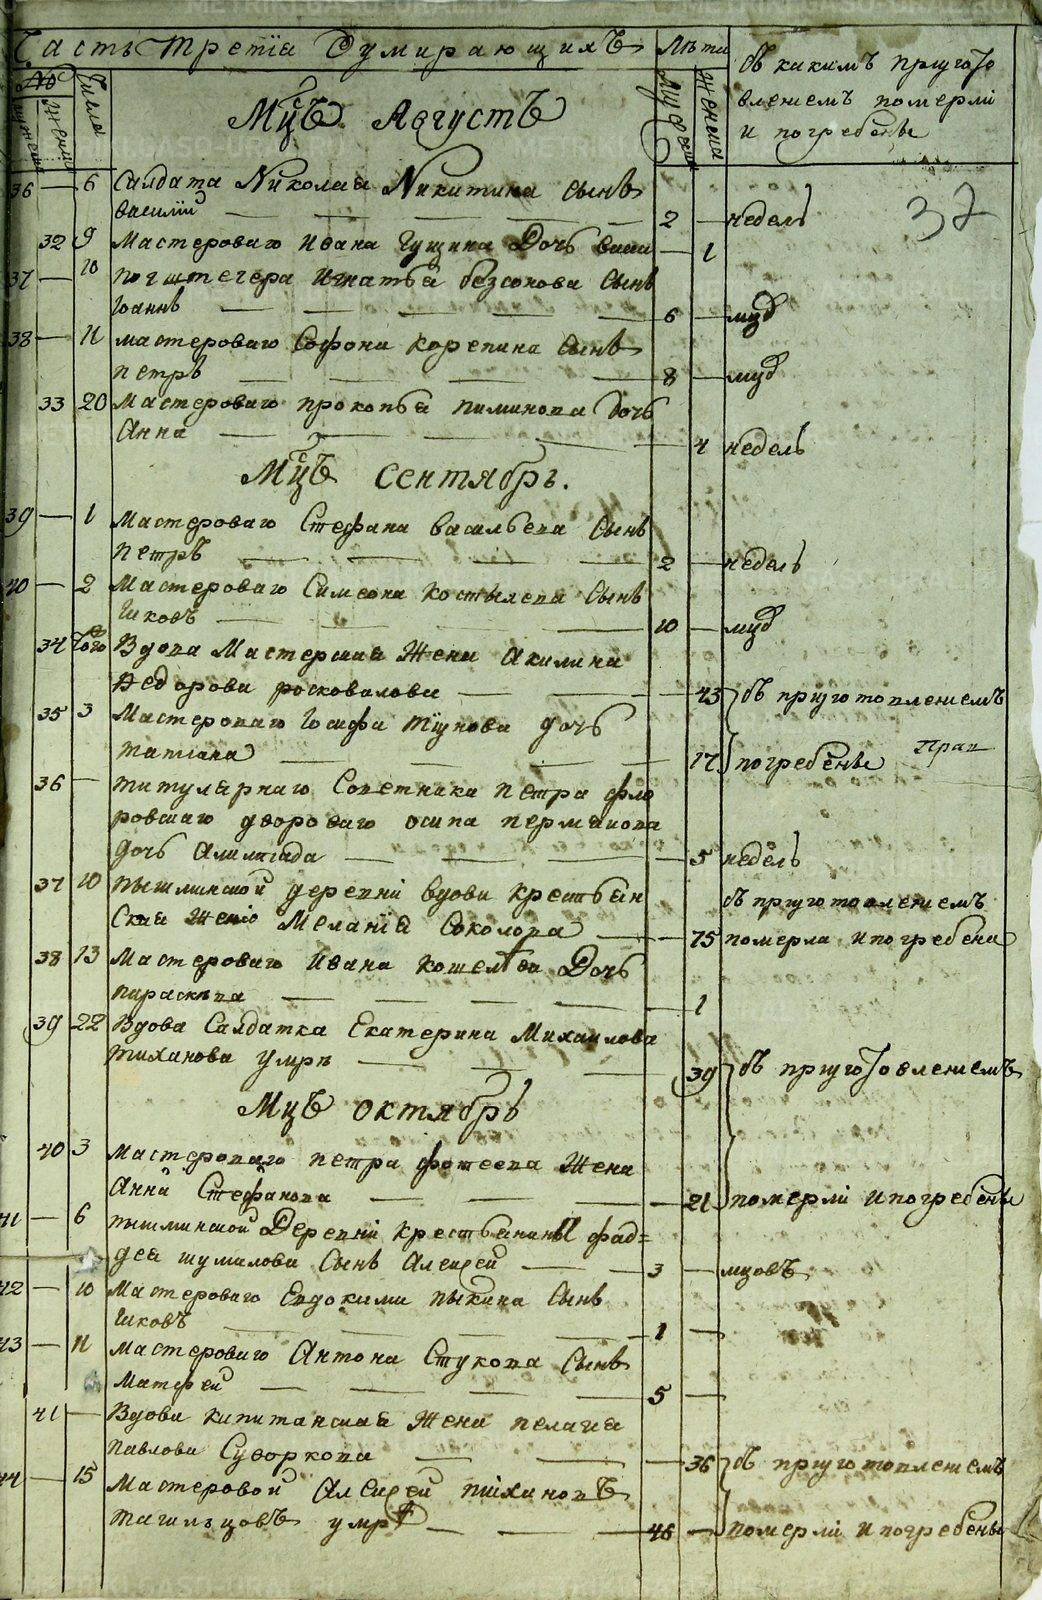 Часть третїа О умирающихъ Лѣта
съ какимъ пригото
влениемъ померли
и погребены
№ Числа
мужеска женска
Мужеска Женска
Мцъ Августъ
37
36 — 6 Салдата Николая Никитина сынъ
Василiй — 2 — недель
32 9 Мастероваго Ивана Гущина Дочь — 1
37 — 10 Игнатья безсонова Сынъ
Iоаннъ — 6 — мцо
38 — 11 мастероваго Софона Корепина Сынъ
петръ — 8 — мцо
33 20 Мастероваго прокопья пиминова дочь
Анна — 4 недель
Мцъ сентябрь.
39 — 1 Мастероваго Стефана Васильева Сынъ
петръ — 2 — недель
40 — 2 Мастероваго Симеона костылева Сынъ
Iяковъ — 10 — мцо
34 Того Вдова Мастерская Жена Акилина
Федорова — 43 съ приготовлениемъ
35 3 Мастероваго Iосифа дочь
татиана — 17 погребены
36 — титулярнаго Советника петра фло
ровскаго двороваго осипа пермякова
дочь — 5 недель
37 10 пышминской деревни вдова крестьян
ская жена Меланїя Соколова — 75 съ приготовлениемъ
померла и погребена
38 13 Мастероваго Ивана кошелева Дочь
параскева — 1
39 22 Вдова Салдатка Екатерина Михаилова
тиханова умре — 39 съ приготовлениемъ
Мцъ октябрь
40 3 Мастероваго петра фотеева Жена
Анна Стефанова — 21 померли и погребены
41 — 6 пышминской Деревни крестьянина фад=
дея шумилова Сынъ Алексей — 3 — мцовъ
42 — 10 Мастероваго Евдокима пыкина Сынъ
Iяковъ — 1 —
43 — 11 Мастероваго Антона Стукова Сынъ
Матфей — 5 —
41 — Вдова капитанская Жена пелагея
павлова Суворкова — 36 съ приготовлениемъ
44 — 15 Мастеровой Алексей
тагильцовъ умре — 46 — померли и погребены